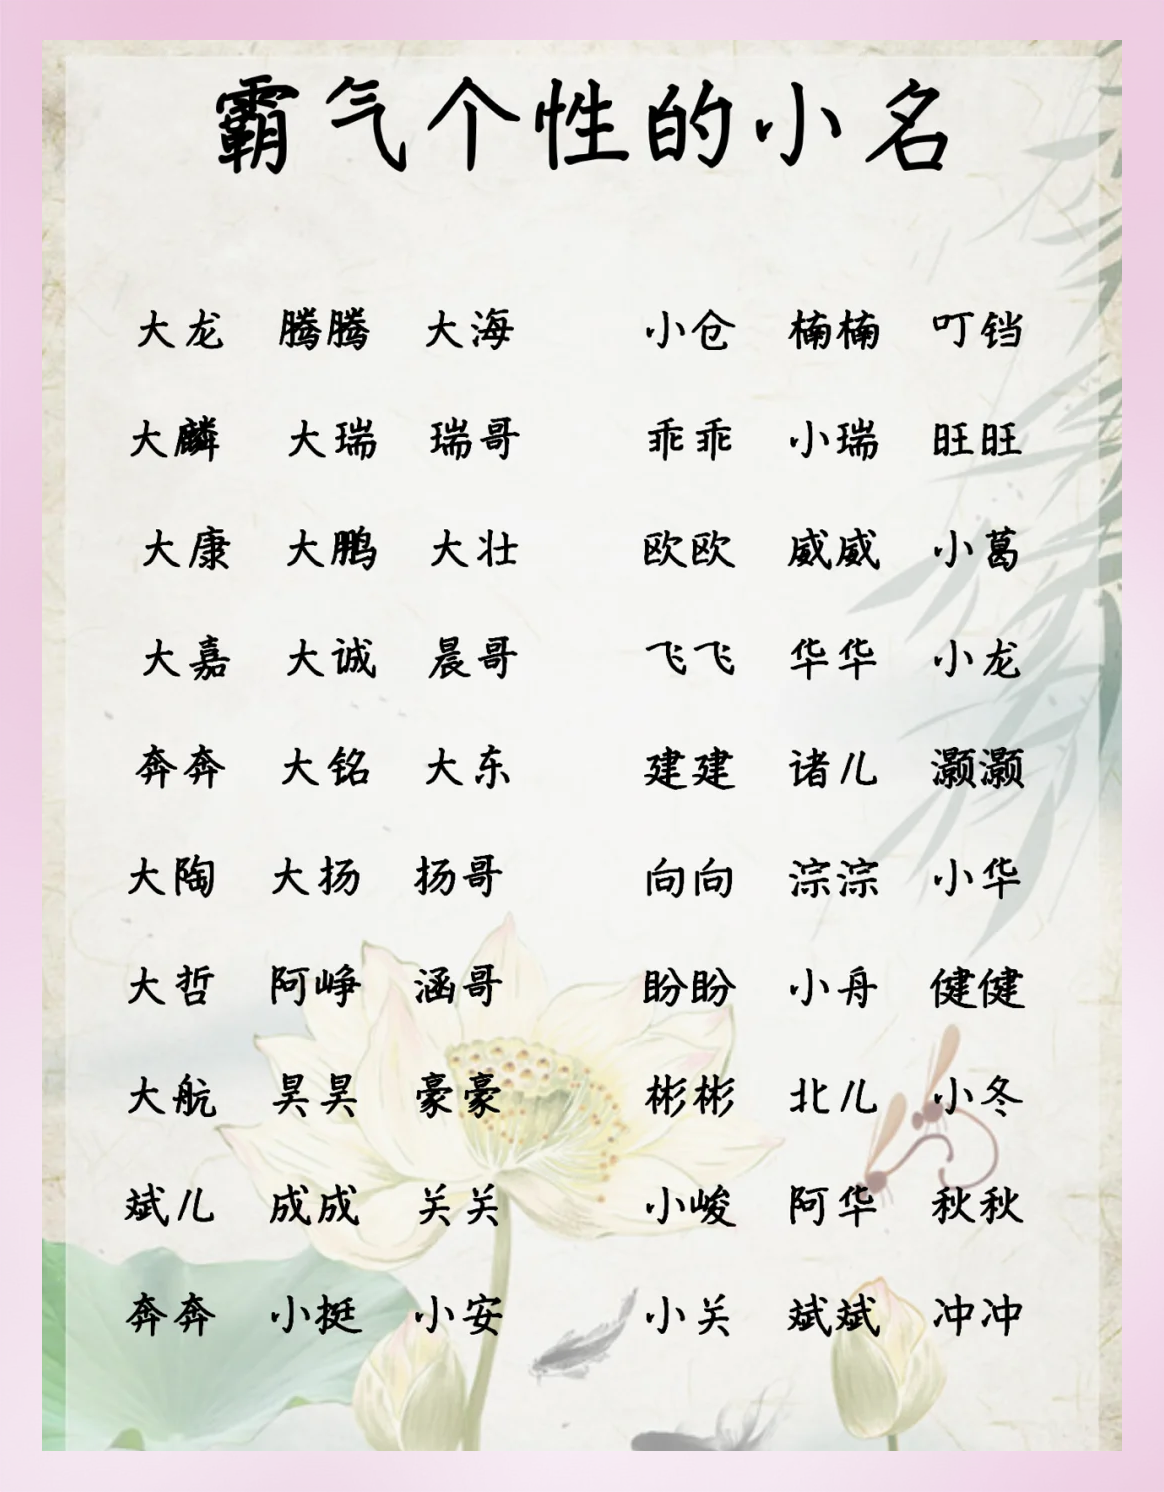 霸气个性的小名
大龙 腾腾 大海 小仓 楠楠 叮铛
大麟 大瑞 瑞哥 乖乖 小瑞 旺旺
大康 大鹏 大壮 欧欧 威威 小葛
大嘉 大诚 晨哥 飞飞 华华 小龙
奔奔 大铭 大东 建建 诸儿 灏灏
大陶 大扬 扬哥 向向 淙淙 小华
大哲 阿峥 涵哥 盼盼 小舟 健健
大航 昊昊 豪豪 彬彬 北儿 小冬
斌儿 成成 关关 小峻 阿华 秋秋
奔奔 小挺 小安 小关 斌斌 冲冲